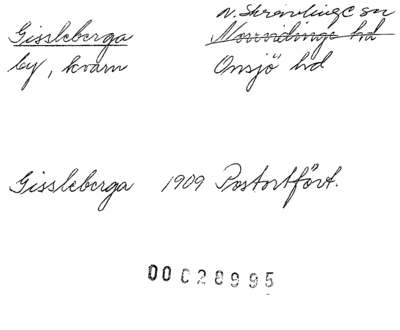 Gissleberga
N. Skrävlinge sn
Norrvidinge hd
by, kvarn
Onsjö hd
Gissleberga 1909 Postortfört.
00028995